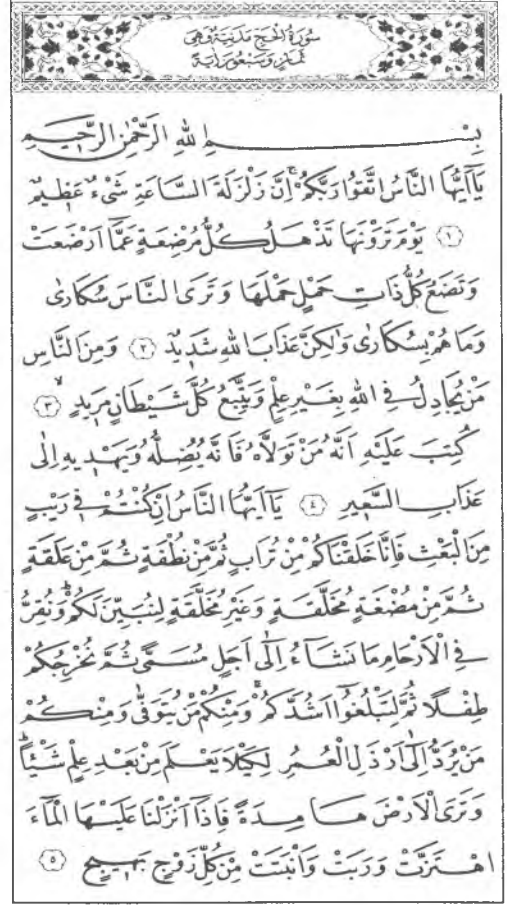 سُورَةُ الْحَجِّ مَدَنِيَّةٌ وَهِيَ
ثَمَانٍ وَسَبْعُونَ اٰيَةً
بِسْمِ اللّٰهِ الرَّحْمٰنِ الرَّحِيمِ
يَآ اَيُّهَا النَّاسُ اتَّقُوا رَبَّكُمْۚ اِنَّ زَلْزَلَةَ السَّاعَةِ شَيْءٌ عَظِيمٌ
﴿١﴾ يَوْمَ تَرَوْنَهَا تَذْهَلُ كُلُّ مُرْضِعَةٍ عَمَّٓا اَرْضَعَتْ
وَتَضَعُ كُلُّ ذَاتِ حَمْلٍ حَمْلَهَا وَتَرَى النَّاسَ سُكَارٰى
وَمَا هُمْ بِسُكَارٰى وَلٰكِنَّ عَذَابَ اللّٰهِ شَدِيدٌ ﴿٢﴾ وَمِنَ النَّاسِ
مَنْ يُجَادِلُ فِي اللّٰهِ بِغَيْرِ عِلْمٍ وَيَتَّبِعُ كُلَّ شَيْطَانٍ مَرِيدٍۙ ﴿٣﴾
كُتِبَ عَلَيْهِ اَنَّهُ مَنْ تَوَلَّاهُ فَاَنَّهُ يُضِلُّهُ وَيَهْدِيهِ اِلٰى
عَذَابِ السَّعِيرِ ﴿٤﴾ يَآ اَيُّهَا النَّاسُ اِنْ كُنْتُمْ فِي رَيْبٍ
مِنَ الْبَعْثِ فَاِنَّا خَلَقْنَاكُمْ مِنْ تُرَابٍ ثُمَّ مِنْ نُطْفَةٍ ثُمَّ مِنْ عَلَقَةٍ
ثُمَّ مِنْ مُضْغَةٍ مُخَلَّقَةٍ وَغَيْرِ مُخَلَّقَةٍ لِنُبَيِّنَ لَكُمْۜ وَنُقِرُّ
فِي الْاَرْحَامِ مَا نَشَٓاءُ اِلٰٓى اَجَلٍ مُسَمًّى ثُمَّ نُخْرِجُكُمْ
طِفْلًا ثُمَّ لِتَبْلُغُٓوا اَشُدَّكُمْۚ وَمِنْكُمْ مَنْ يُتَوَفّٰى وَمِنْكُمْ
مَنْ يُرَدُّ اِلٰٓى اَرْذَلِ الْعُمُرِ لِكَيْلَا يَعْلَمَ مِنْ بَعْدِ عِلْمٍ شَيْـًٔاۜ
وَتَرَى الْاَرْضَ هَامِدَةً فَاِذَٓا اَنْزَلْنَا عَلَيْهَا الْمَٓاءَ
اهْتَزَّتْ وَرَبَتْ وَاَنْبَتَتْ مِنْ كُلِّ زَوْجٍ بَهِيجٍ ﴿٥﴾